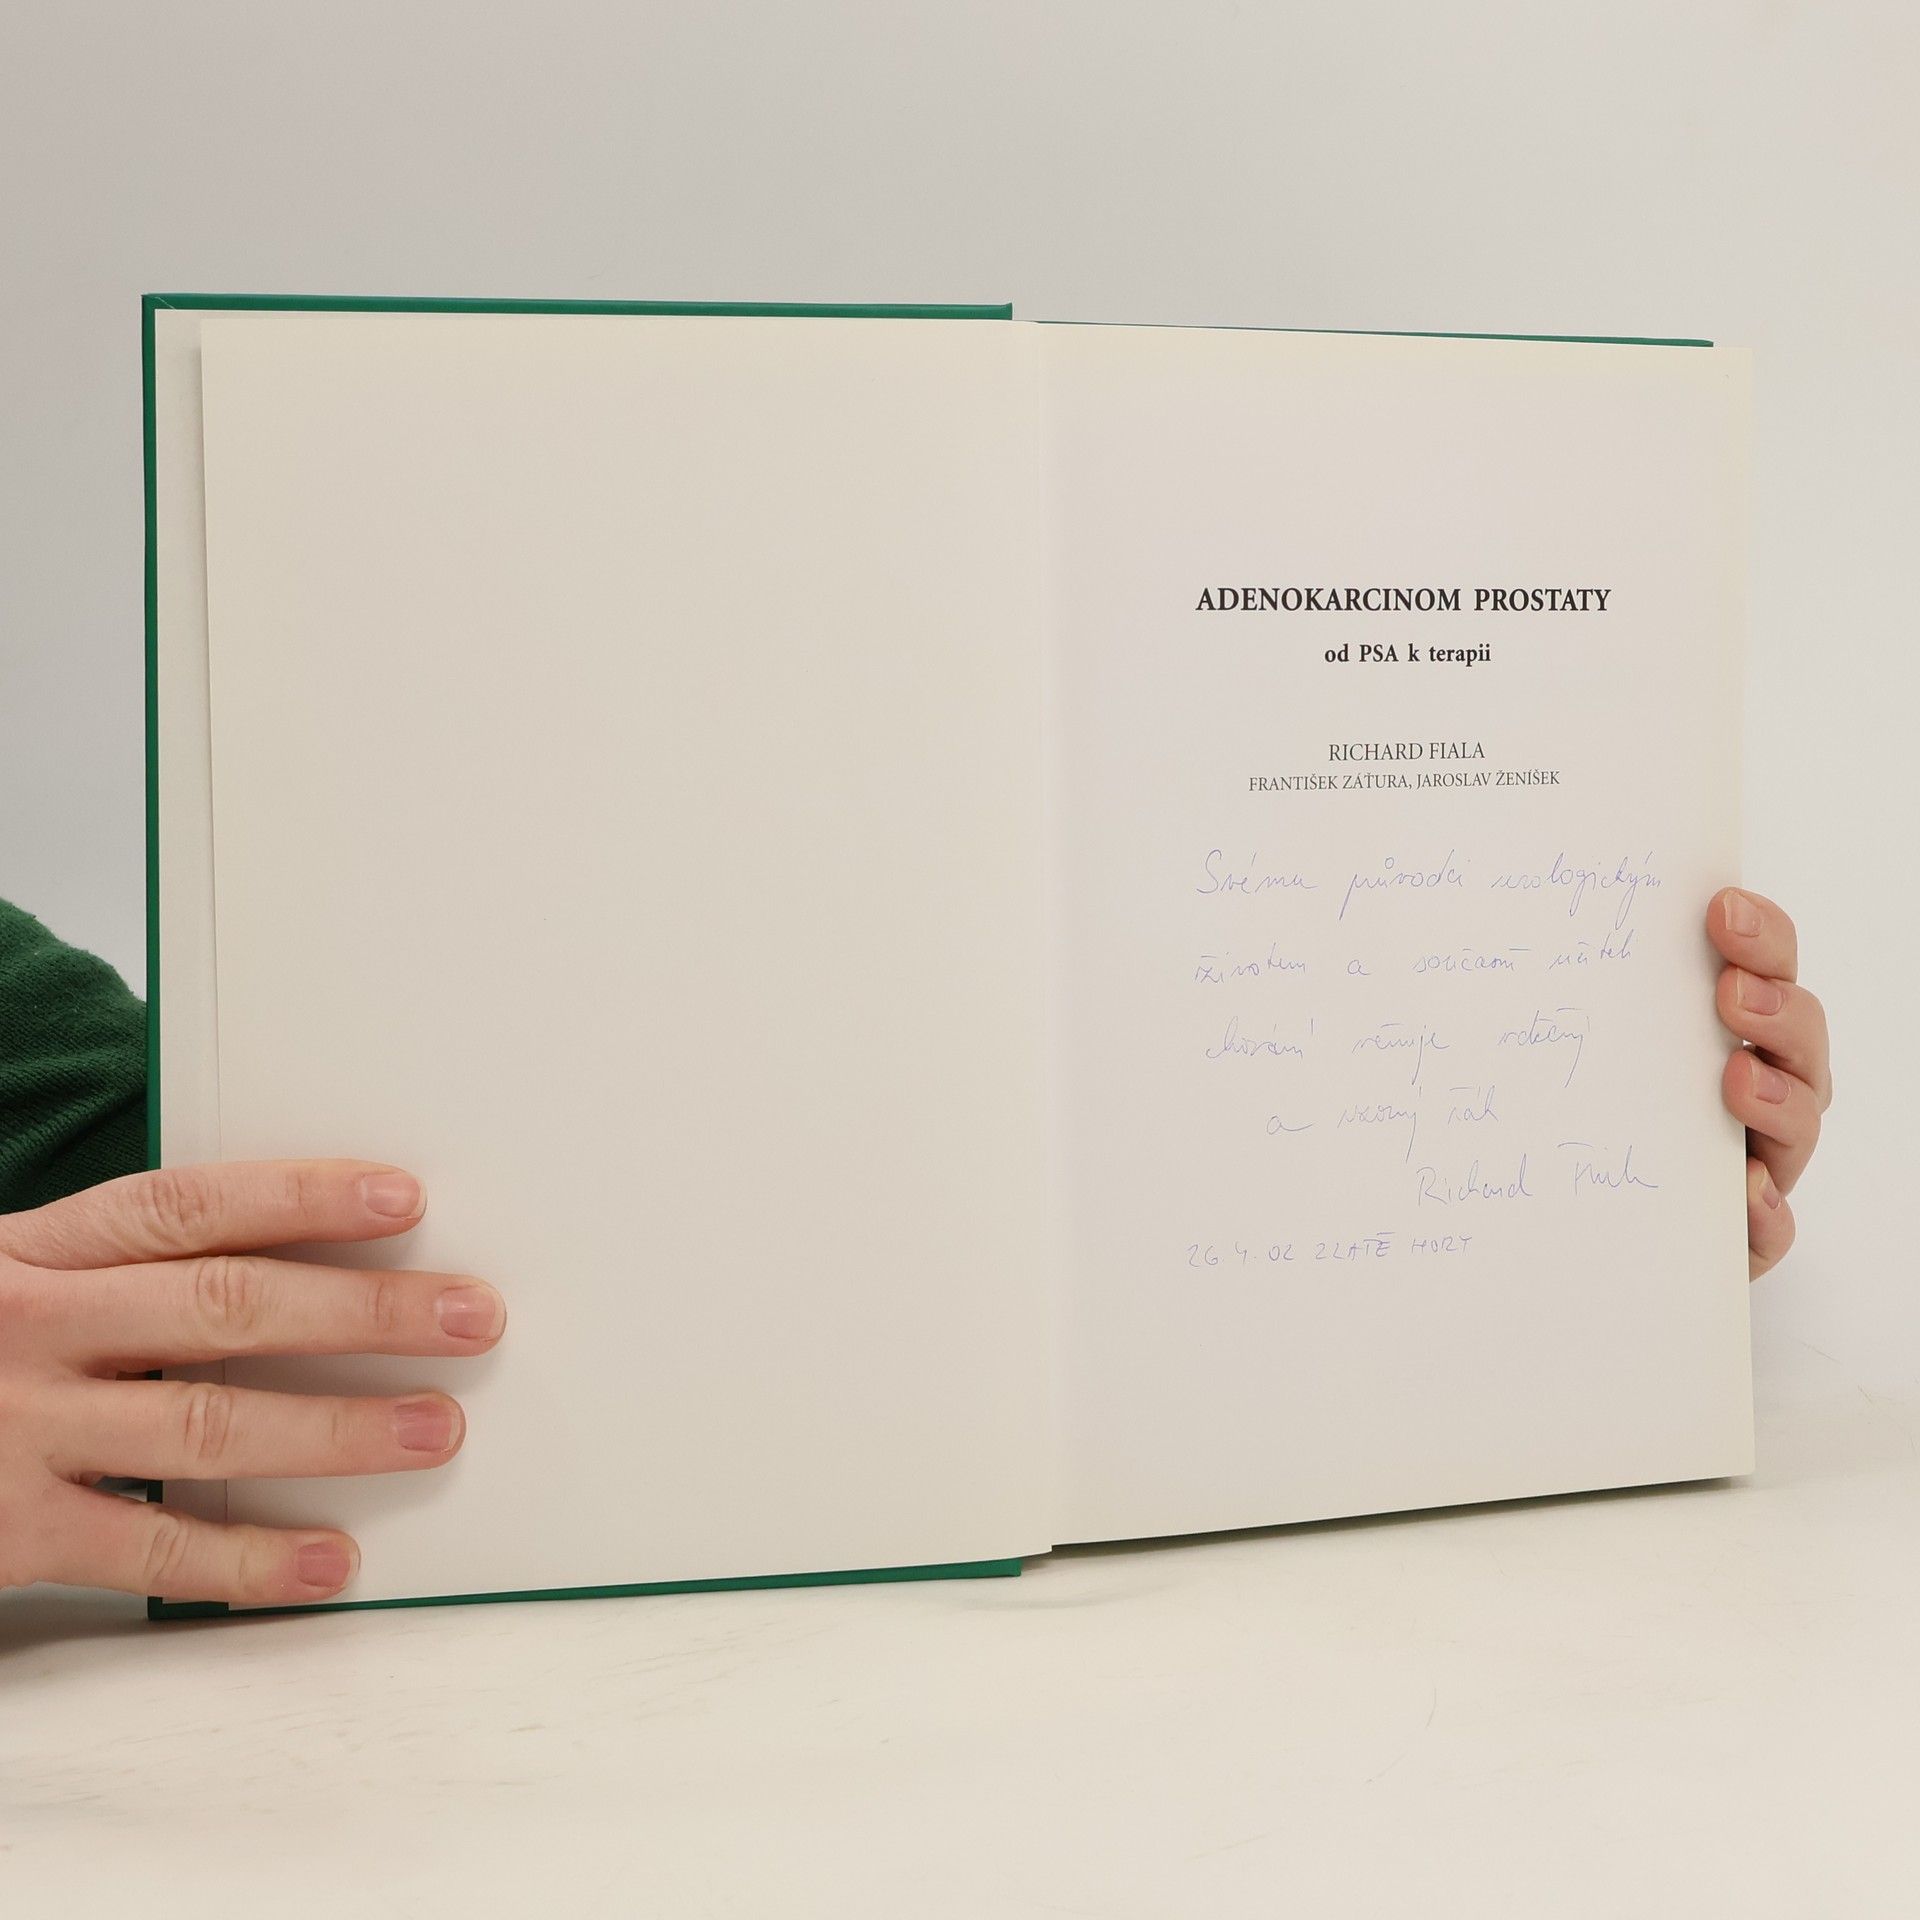 ADENOKARCINOM PROSTATY
od PSA k terapii
RICHARD FIALA
FRANTIŠEK ZÁŤURA, JAROSLAV ŽENÍŠEK
Svému průvodci urologickým
životem a současně učiteli
chování věnuje vděčný
a vzorný žák
Richard Fiala
26. 4. 02 ZLATÉ HORY